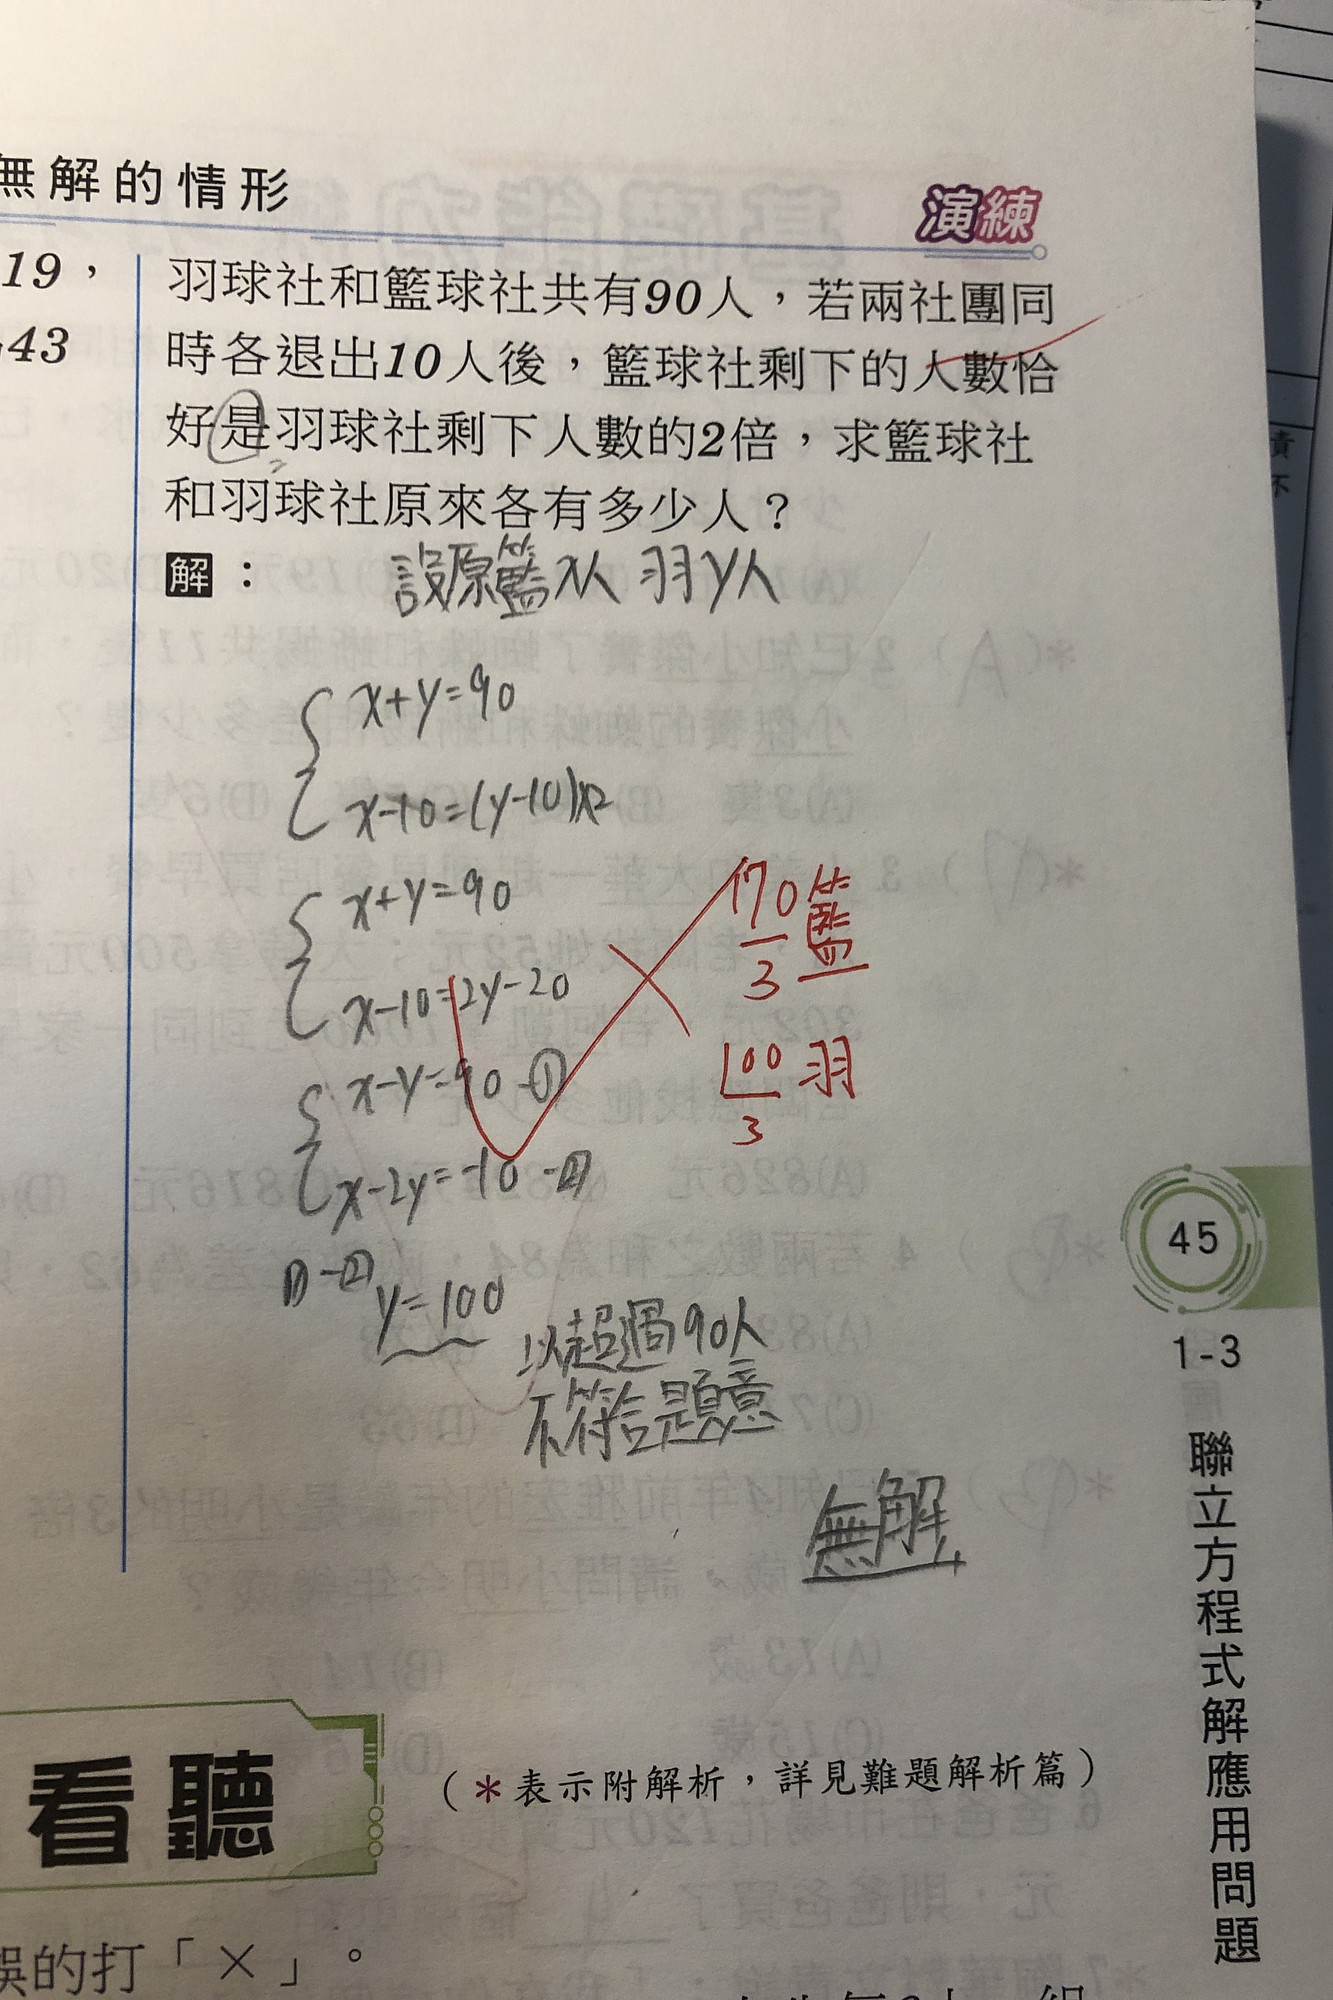 無解的情形
演練
19，
43
羽球社和籃球社共有90人，若兩社團同
時各退出10人後，籃球社剩下的人數恰
好是羽球社剩下人數的2倍，求籃球社
和羽球社原來各有多少人？
解：
設原籃x人 羽y人
x+y=90
x-10=(y-10)x2
x+y=90
x-10=2y-20
x-y=90-①
x-2y=-10-②
①-②
y=100
以超過90人
不符合題意
無解
170/3 籃
100/3 羽
45
1-3
聯立方程式解應用問題
看聽
（＊表示附解析，詳見難題解析篇）
誤的打「×」。